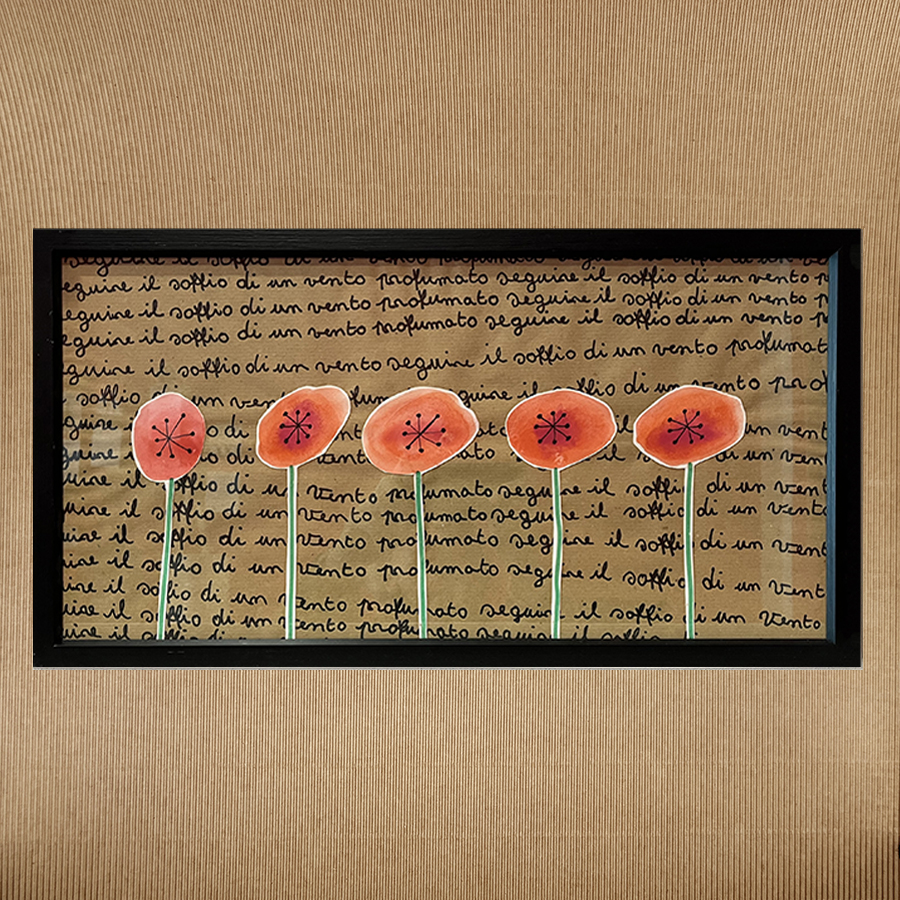 seguire il soffio di un vento profumato seguire il soffio di un ve
eguire il soffio di un vento profumato seguire il soffio di un vento p
eguire il soffio di un vento profumato seguire il soffio di un vento p
eguire il soffio di un vento profumato seguire il soffio di un vento p
guire il soffio di un vento seguire il soffio di un vento profumat
soffio di un vento seguire il soffio di un vento prof
guire di un vento
guire il di un vento il soffio di un vent
uire il soffio di un vento profumato seguire il soffio di un vent
uire il soffio di un vento profumato seguire il soffio di un vento
uire il soffio di un vento profumato seguire il soffio di un vent
uire il soffio di un vento profumato seguire il soffio di un vent
uire il soffio di un vento profumato seguire il soffio di un vento
uire il soffio di un vento profumato seguire il soffio